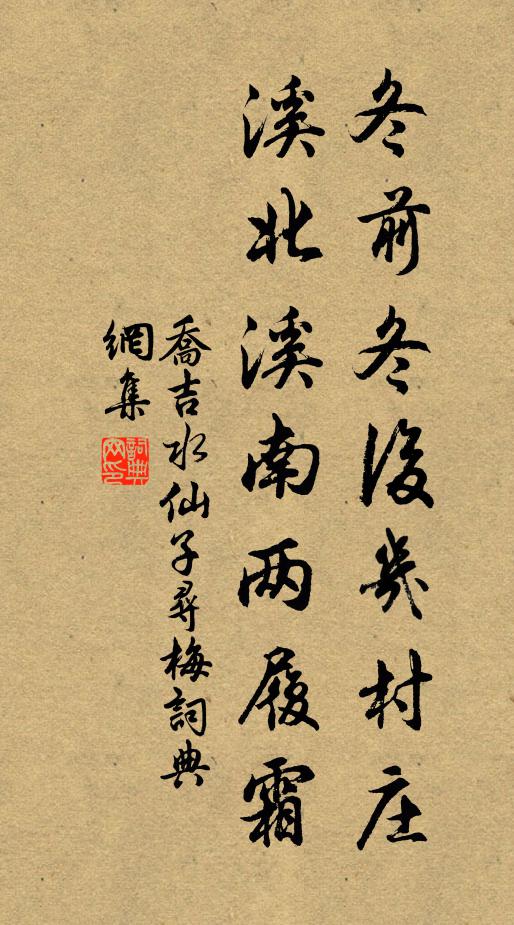 冬前冬後幾村庄
溪北溪南两履霜
喬吉水仙子尋梅詞典
網集
詞典
网印